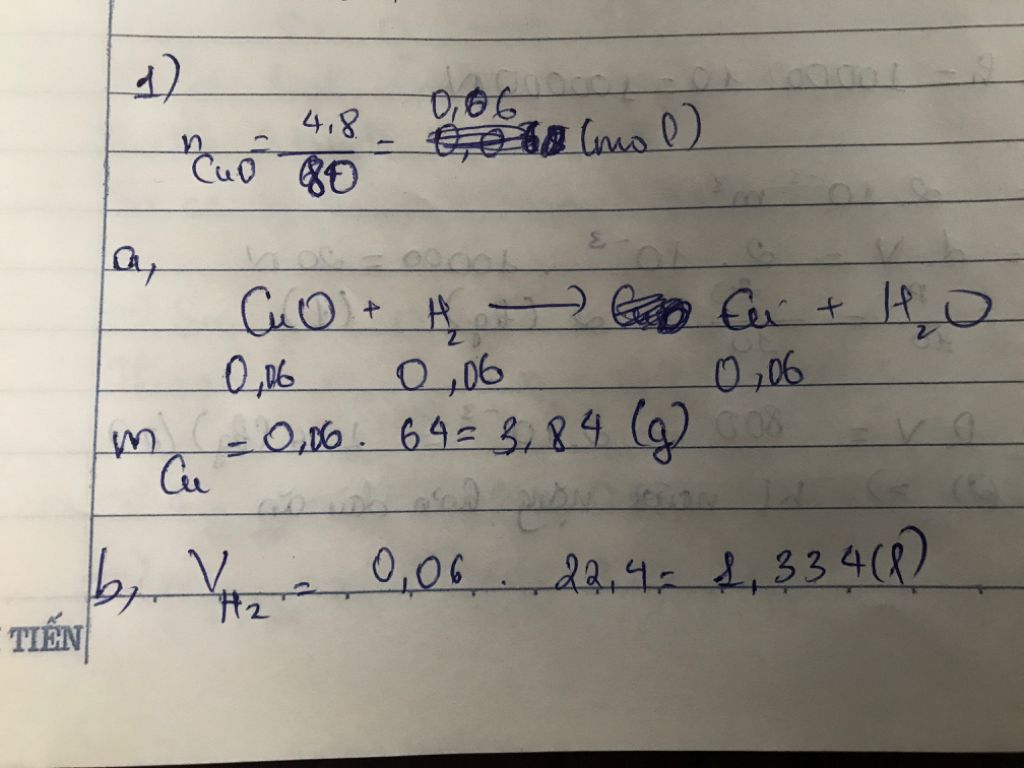 1)
n CuO = 4,8 / 80 = 0,06 (mol)
a,
CuO + H2 → Cu + H2O
0,06 0,06 0,06
m Cu = 0,06 . 64 = 3,84 (g)
b, V H2 = 0,06 . 22,4 = 1,334 (l)
TIẾN